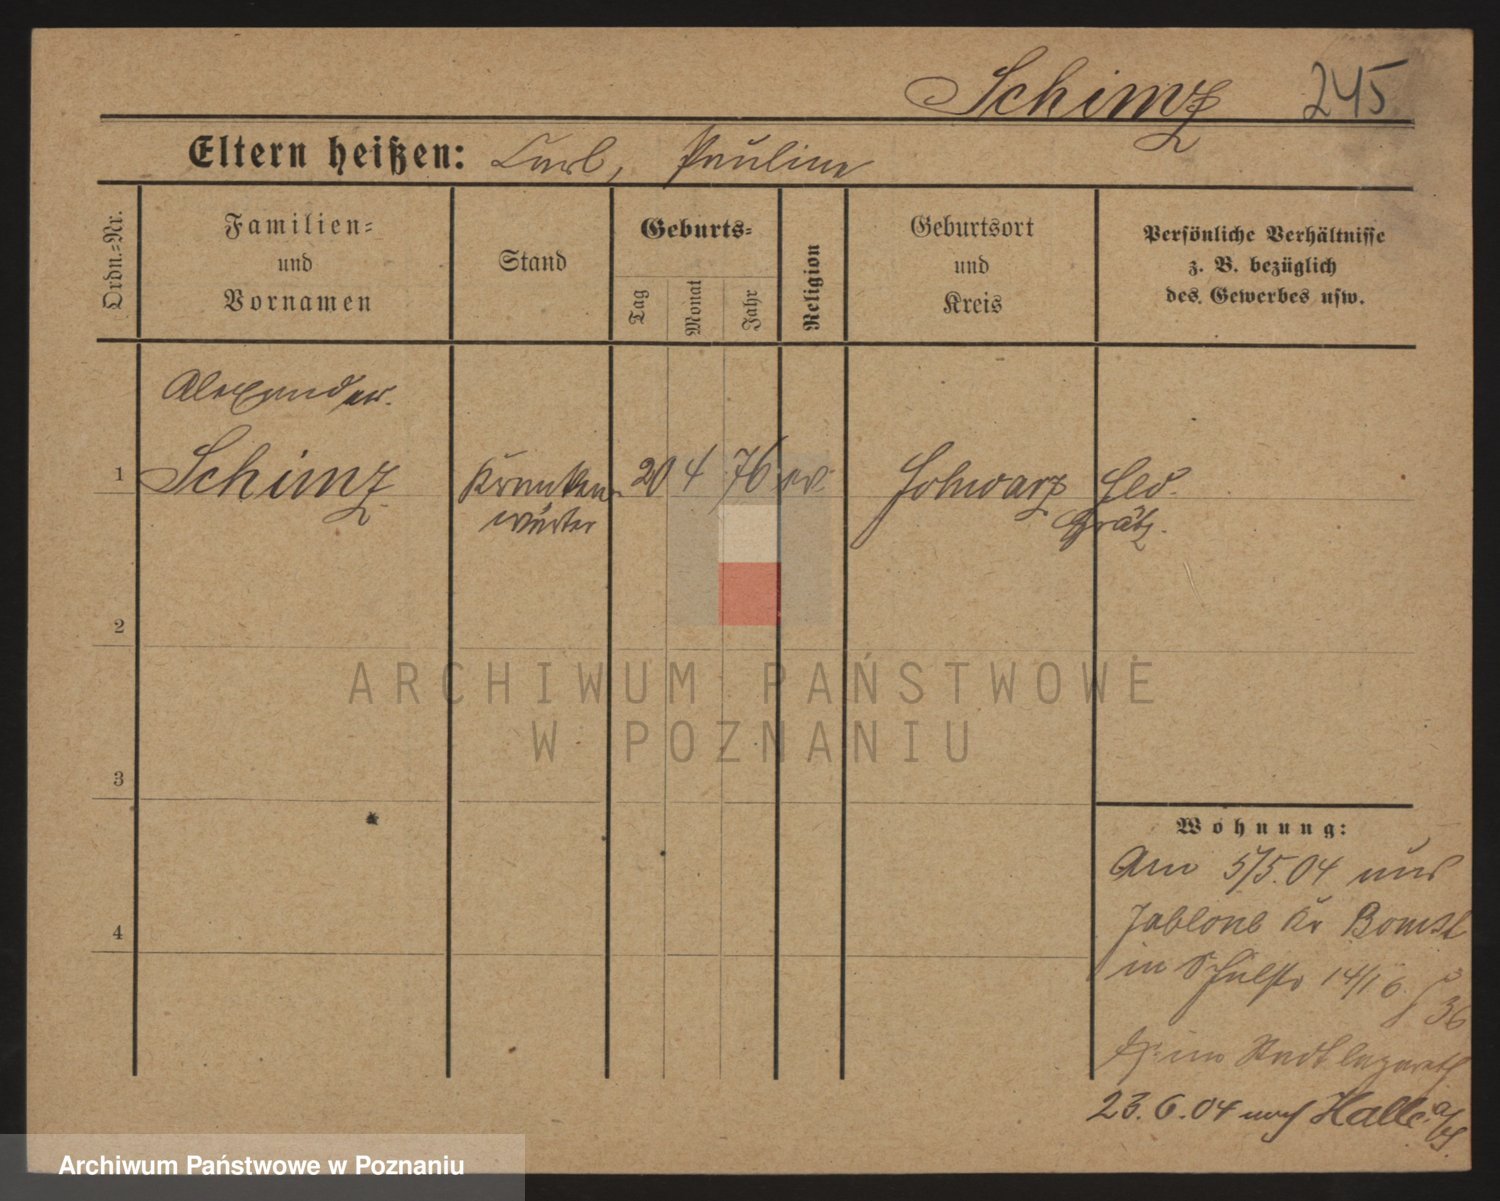 Schimz 245
Eltern heißen: Carl, Pauline
Ordn.-Nr.
Familien-
und
Vornamen
Stand
Geburts-
Tag
Monat
Jahr
Religion
Geburtsort
und
Kreis
Persönliche Verhältnisse
z. B. bezüglich
des Gewerbes usw.
Alexander
1 Schimz Kranken- 20 4 76 ev. Schwarz Hld.
wärter Grätz.
2
3
4
Wohnung:
Am 5/5.04 aus
Jablone Kr Bomst
in Schulstr 14/16
36
im Stadtlazareth
23.6.04 nach Halle a/S.
ARCHIWUM PAŃSTWOWE
W POZNANIU
Archiwum Państwowe w Poznaniu